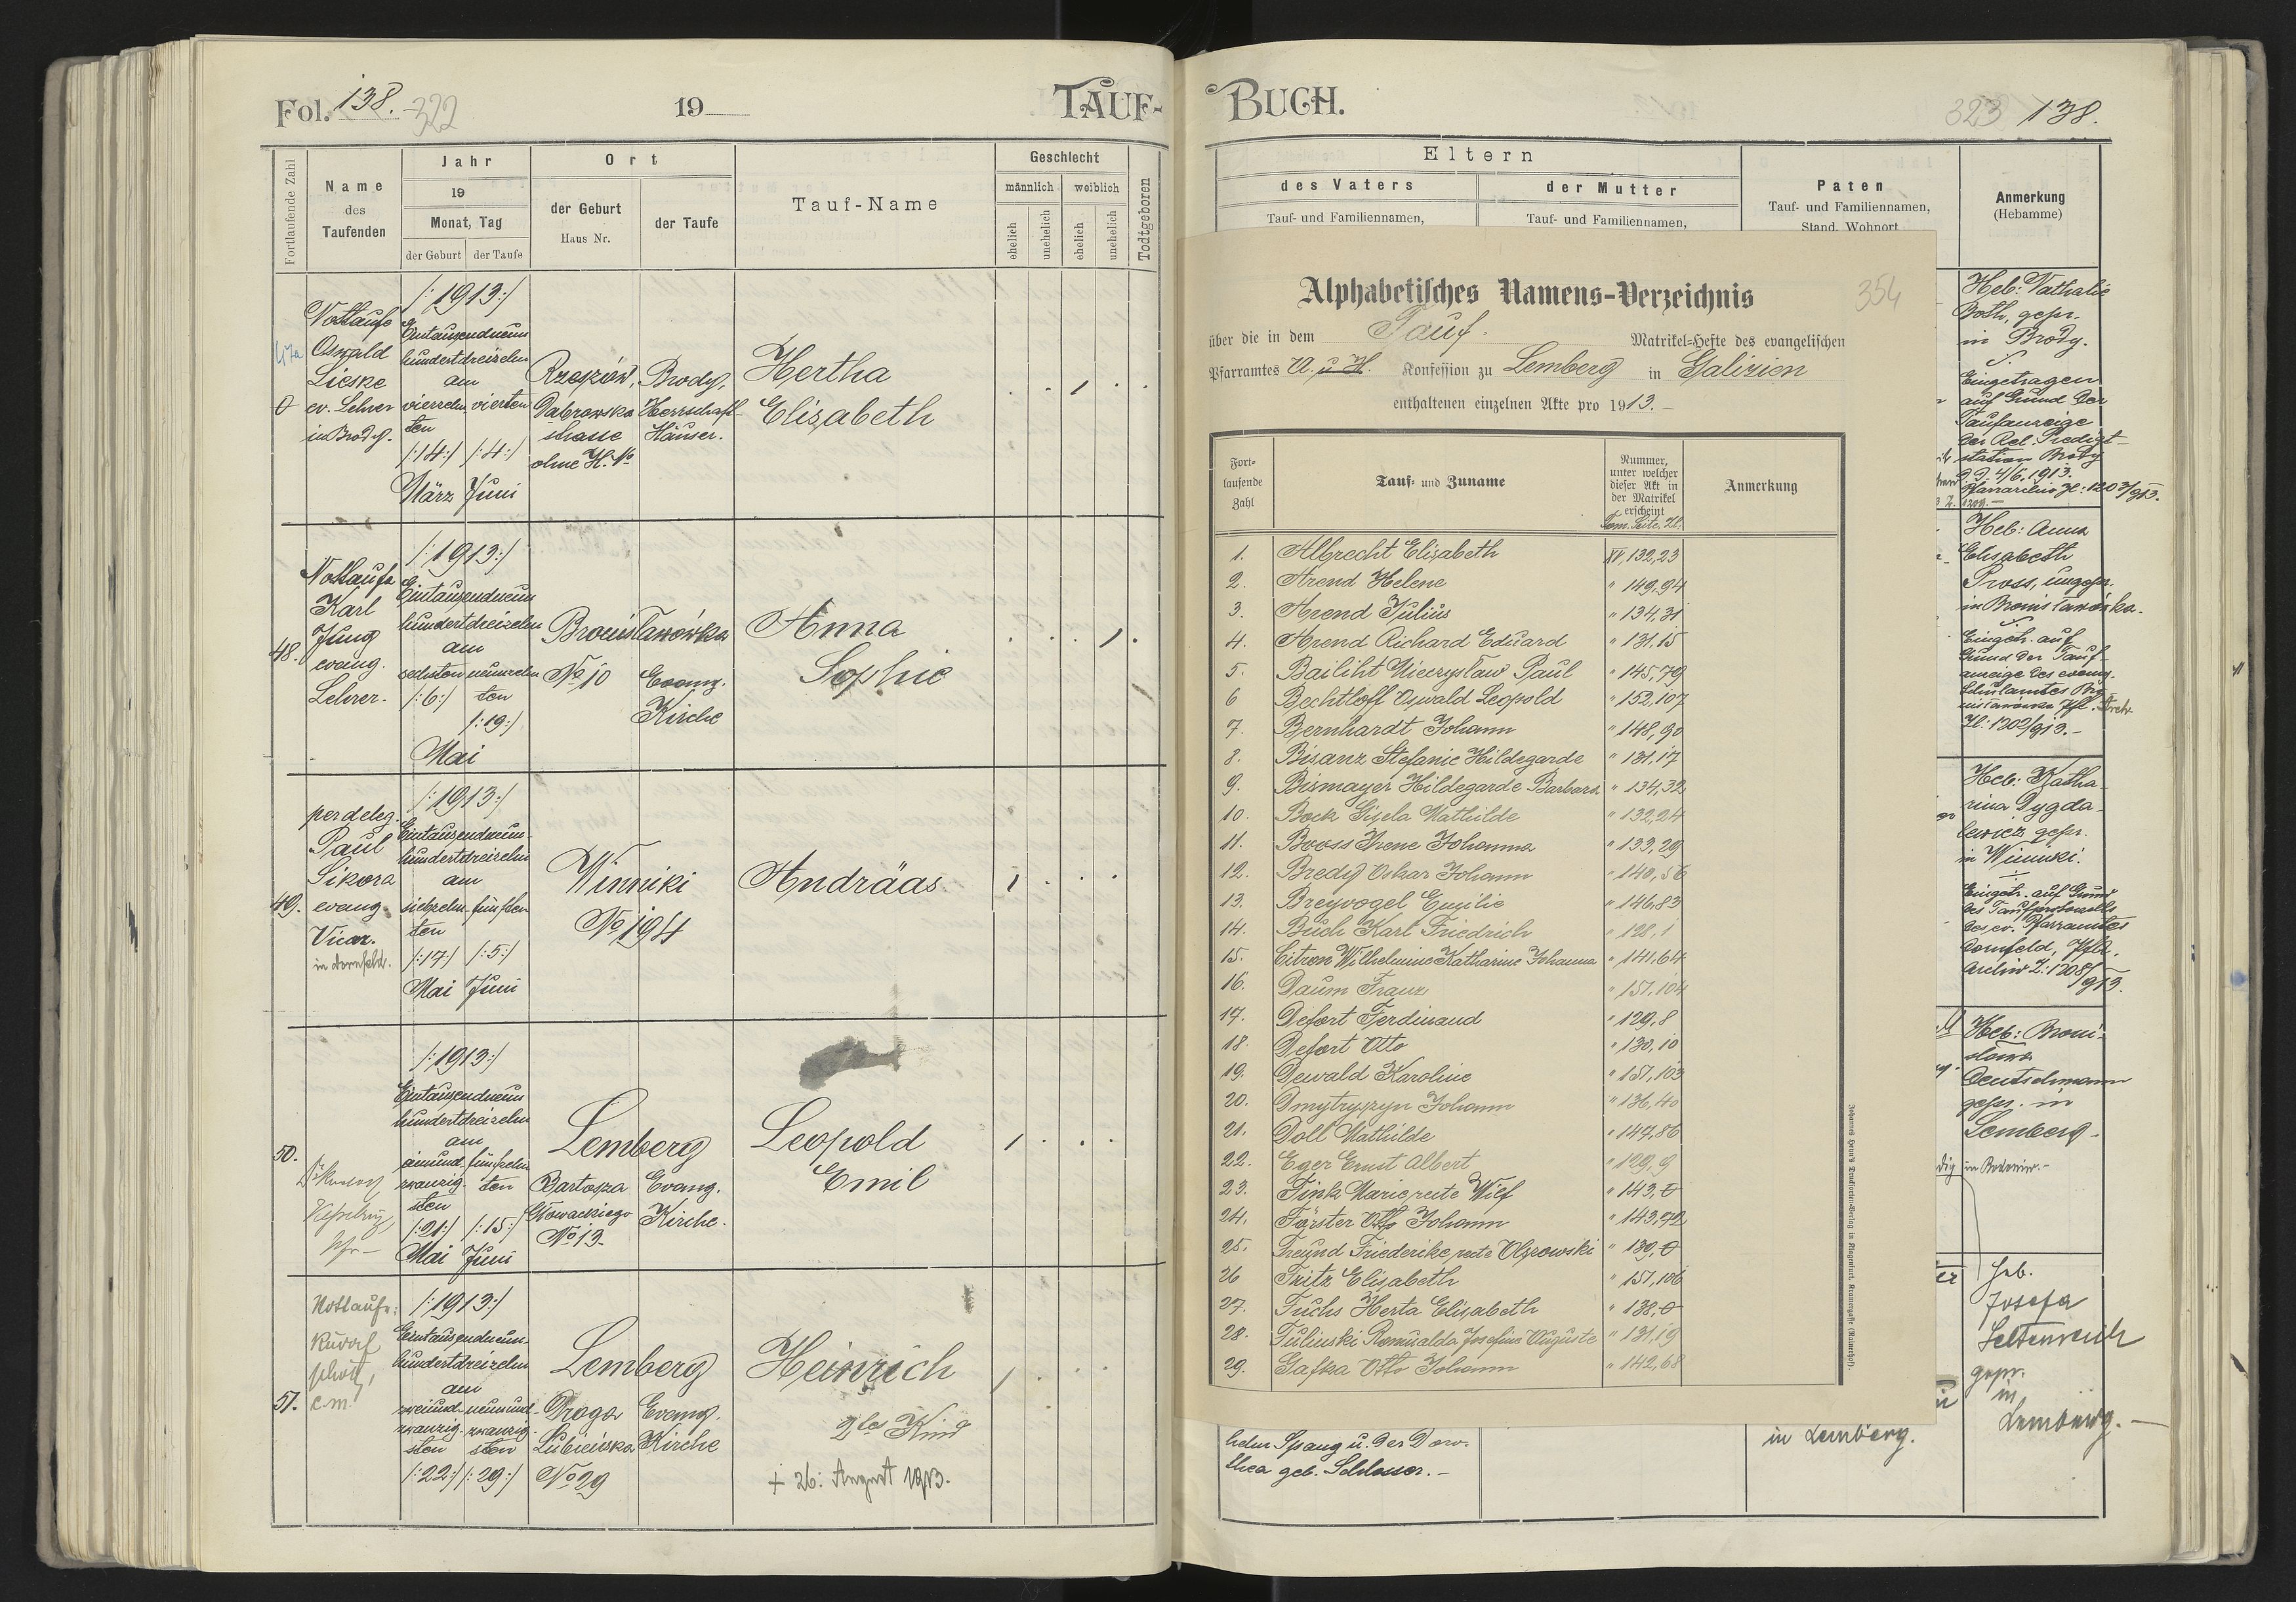 Fol. 138. 322
19
TAUF-
Fortlaufende Zahl
Name
des
Taufenden
Jahr
19
Monat, Tag
der Geburt
der Taufe
Ort
der Geburt
Haus Nr.
der Taufe
Tauf-Name
Geschlecht
männlich
weiblich
ehelich
unehelich
ehelich
unehelich
Todtgeboren
0
Nottaufe
Oswald
Lieske
ev. Lehrer
in Brody.
/:1913:/
Eintausendneun
hundertdreizehn
am
vierzehn vierten
ten
/:14:/ /:4:/
März Juni
Rzeszów,
Dabrowska
strasse
ohne H. No
Brody,
Herrschaftl-
Häuser.
Hertha
Elisabeth
48.
Nottaufe
Karl
Jung
evang.
Lehrer.
/:1913:/
Eintausendneun
hundertdreizehn
am
sechsten neunzehn
/:6:/ ten
/:19:/
Mai
Bronisławówka
No 10
Evang.
Kirche
Anna
Sophie
49.
per deleg.
Paul
Sikora
evang.
Vicar.
in Dornfeld.
/:1913:/
Eintausendneun-
hundertdreizehn
am
siebzehn fünften
ten
/:17:/ /:5:/
Mai Juni
Winniki
No 194
Andräas
50.
/:1913:/
Eintausendneun
hundertdreizehn
am
einund- fünfzehn
zwanzig- ten
sten
/:21:/ /:15:/
Mai Juni
Lemberg
Bartosza
Głowackiego
No 13-
Evang.
Kirche.
Leopold
Emil
51.
Nottaufe:
Rudolf
/:1913:/
Eintausendneun
hundertdreizehn
am
zweiund- neunund-
zwanzig- zwanzig-
sten sten
/:22:/ /:29:/
Lemberg
Droga
Lubieńska
No 29
Evang.
Kirche
Heinrich
2tes Kind
+ 26: August 1913.
BUCH.
323 138.
Eltern
des Vaters
Tauf- und Familiennamen,
der Mutter
Tauf- und Familiennamen,
Paten
Tauf- und Familiennamen,
Stand, Wohnort
Anmerkung
(Hebamme)
Alphabetisches Namens-Verzeichnis
354
über die in dem Tauf- Matrikel-Hefte des evangelischen
Pfarramtes A. u. H. Konfession zu Lemberg in Galizien
enthaltenen einzelnen Akte pro 1913.-
Fort-
laufende
Zahl
Tauf- und Zuname
Nummer,
unter welcher
dieser Akt in
der Matrikel
erscheint
Tom. Seite. Zl.
Anmerkung
1. Albrecht Elisabeth XV, 132,23
2. Arend Helene " 149,94
3. Arend Julius " 134,31
4. Arend Richard Eduard " 131,15
5. Bailiht Mieczysław Paul " 145,79
6 Bechtloff Oswald Leopold " 152,107
7. Bernhardt Johann " 148,90
8. Bisanz Stefanie Hildegarde " 131,17
9. Bismayer Hildegarde Barbara " 134,32
10. Bock Gisela Mathilde " 132,24
11. Booss Irene Johanna " 133,29
12. Bredy Oskar Johann " 140,56
13. Breyvogel Emilie " 146,83
14. Buch Karl Friedrich " 128,1
15. Citron Wilhelmine Katharine Johanna " 141,64
16. Daum Franz " 151,104
17. Defort Ferdinand " 129,8
18. Defort Otto " 130,10
19. Dewald Karoline " 151,103
20. Dmytryszyn Johann " 136,40
21. Doll Mathilde " 147,86
22. Eger Ernst Albert " 129,9
23. Fink Marie recte Wilf " 143,0
24. Förster Otto Johann " 143,72
25. Freund Friederike recte Olszowski " 139,0
26 Fritz Elisabeth " 151,106
27. Fuchs Herta Elisabeth " 138,0
28. Fuliński Romualda Josefine Auguste " 131,19
29. Gafka Otto Johann " 142,68
Johannes Heyn's Drucksorten-Verlag in Klagenfurt, Kramergasse (Rainerhof).
Heb: Nathalie
Both, gepr.
in Brody.
Eingetragen
auf Grund der
Taufanzeige
der Rel. Predigt-
station Brody
d.d. 4/6. 1913.
Pfarrarchiv Zl: 1203/913.
Heb: Anna
Elisabeth
Pross, ungepr.
in Bronisławówka.
Eingetr. auf
Grund der Tauf-
anzeige des evang.
Schulamtes Bro-
nisławówka Pfl. Arch.
Zl: 1202/913.-
Heb: Katha-
rina Dygda-
lewicz gepr.
in Winniki.
Eingetr. auf Grund
des Taufprotokolls
des ev. Pfarramtes
Dornfeld, Pfl.
Archiv Z: 1208/
913.
Heb: Broni-
slawa
Deutschmann
gepr. in
Lemberg-
Heb.
Josefa
Seltenreich
gepr.
in
Lemberg.-
helm Spang u. der Doro-
thea geb. Schlosser.-
in Lemberg.